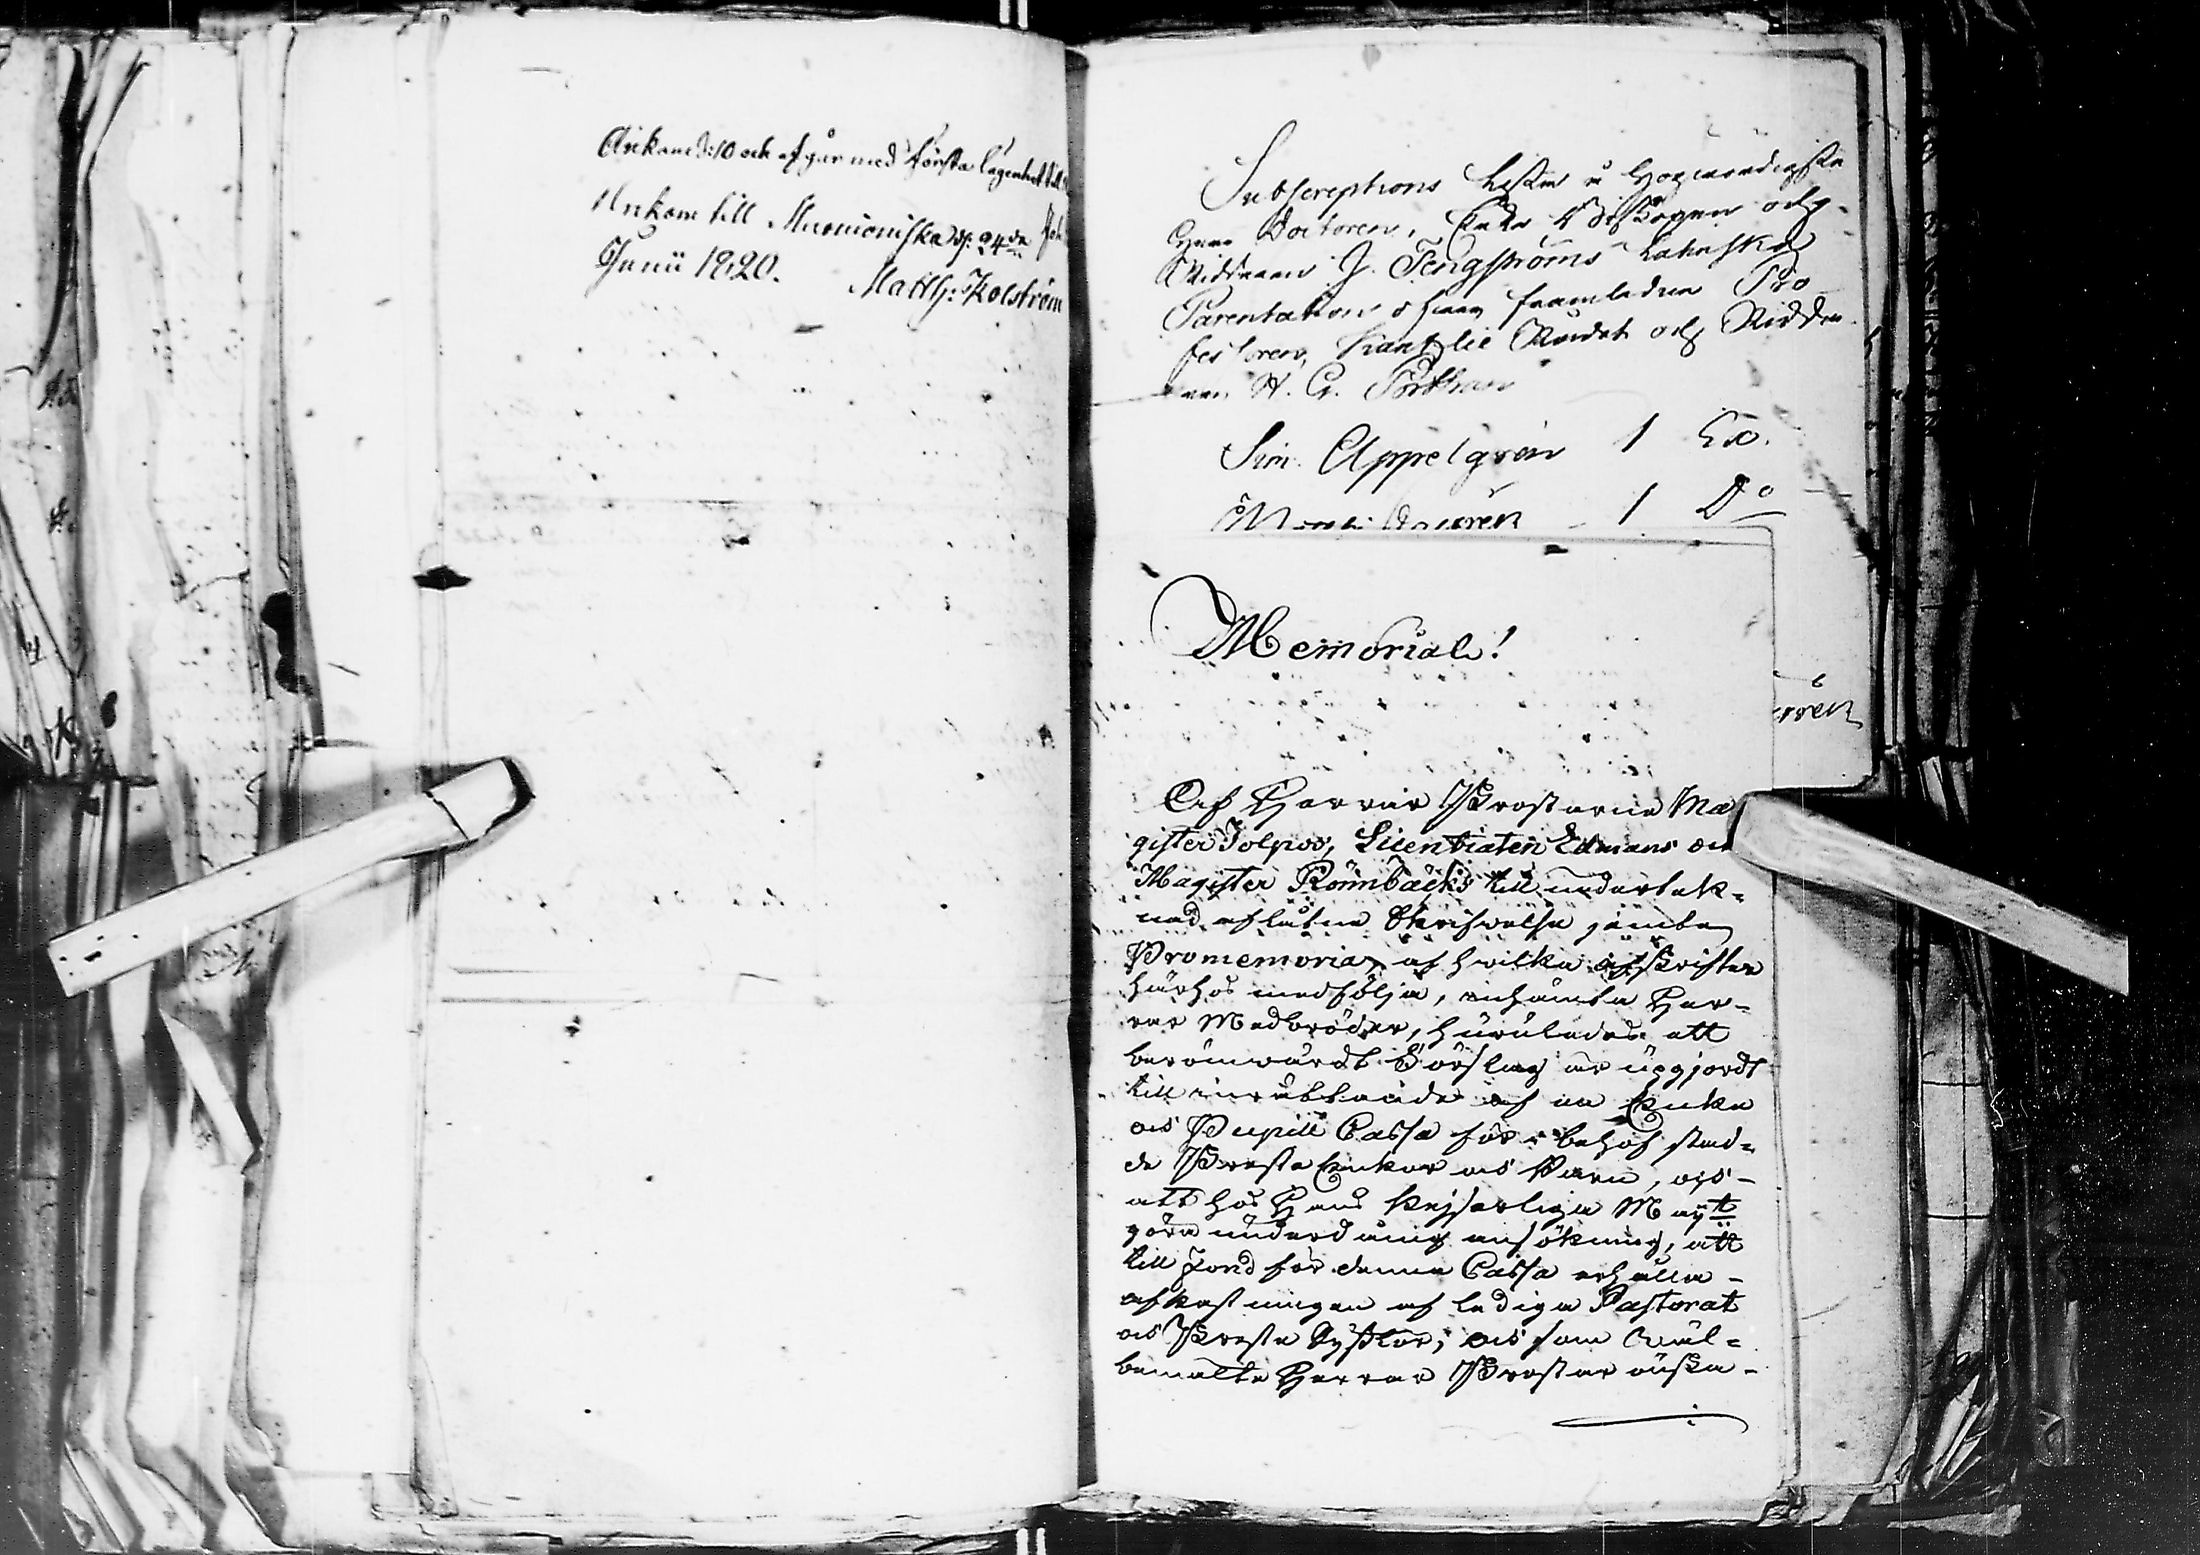 Ankom d: 10 och afgår med första lägenhet till
Ankom till Muonioniska d: 24de
Junii 1820. Matth: Kolström
Subscriptions Lista å Högwördigste
Herr Doctoren, Biskopen och
Riddaren J. Tengströms Latinska
Parentation öfwer framledne Pro
fessoren, Kantzlie Rådet och Ridda
ren H. G. Porthan
Sim. Appelgren 1 Ex.
1 Do
Memorial!
rén
Af Herrar Prostarne Ma
gister Jolpos, Licentiaten Edmans och
Magister Rönnbäcks till undertek-
nad aflåtne Skrifwelse jemte
Promemoria, af hwilka afskrifter
härhos medfölja, inhämta Her-
rar Medbröder, huruledes ett
berömwärdt Förslag är upgjordt
till inrättande af en Enke
och Pupill Cassa för i behof stad-
de Preste Enkor och Barn, och
att hos Hans Kejserliga Mayt
göra underdånig ansökning, att
till Fond för denna Cassa erhålla
afkastningen af lediga Pastorat
och Preste Sysslor; och som Wäl-
bemälte Herrar Prostar önska